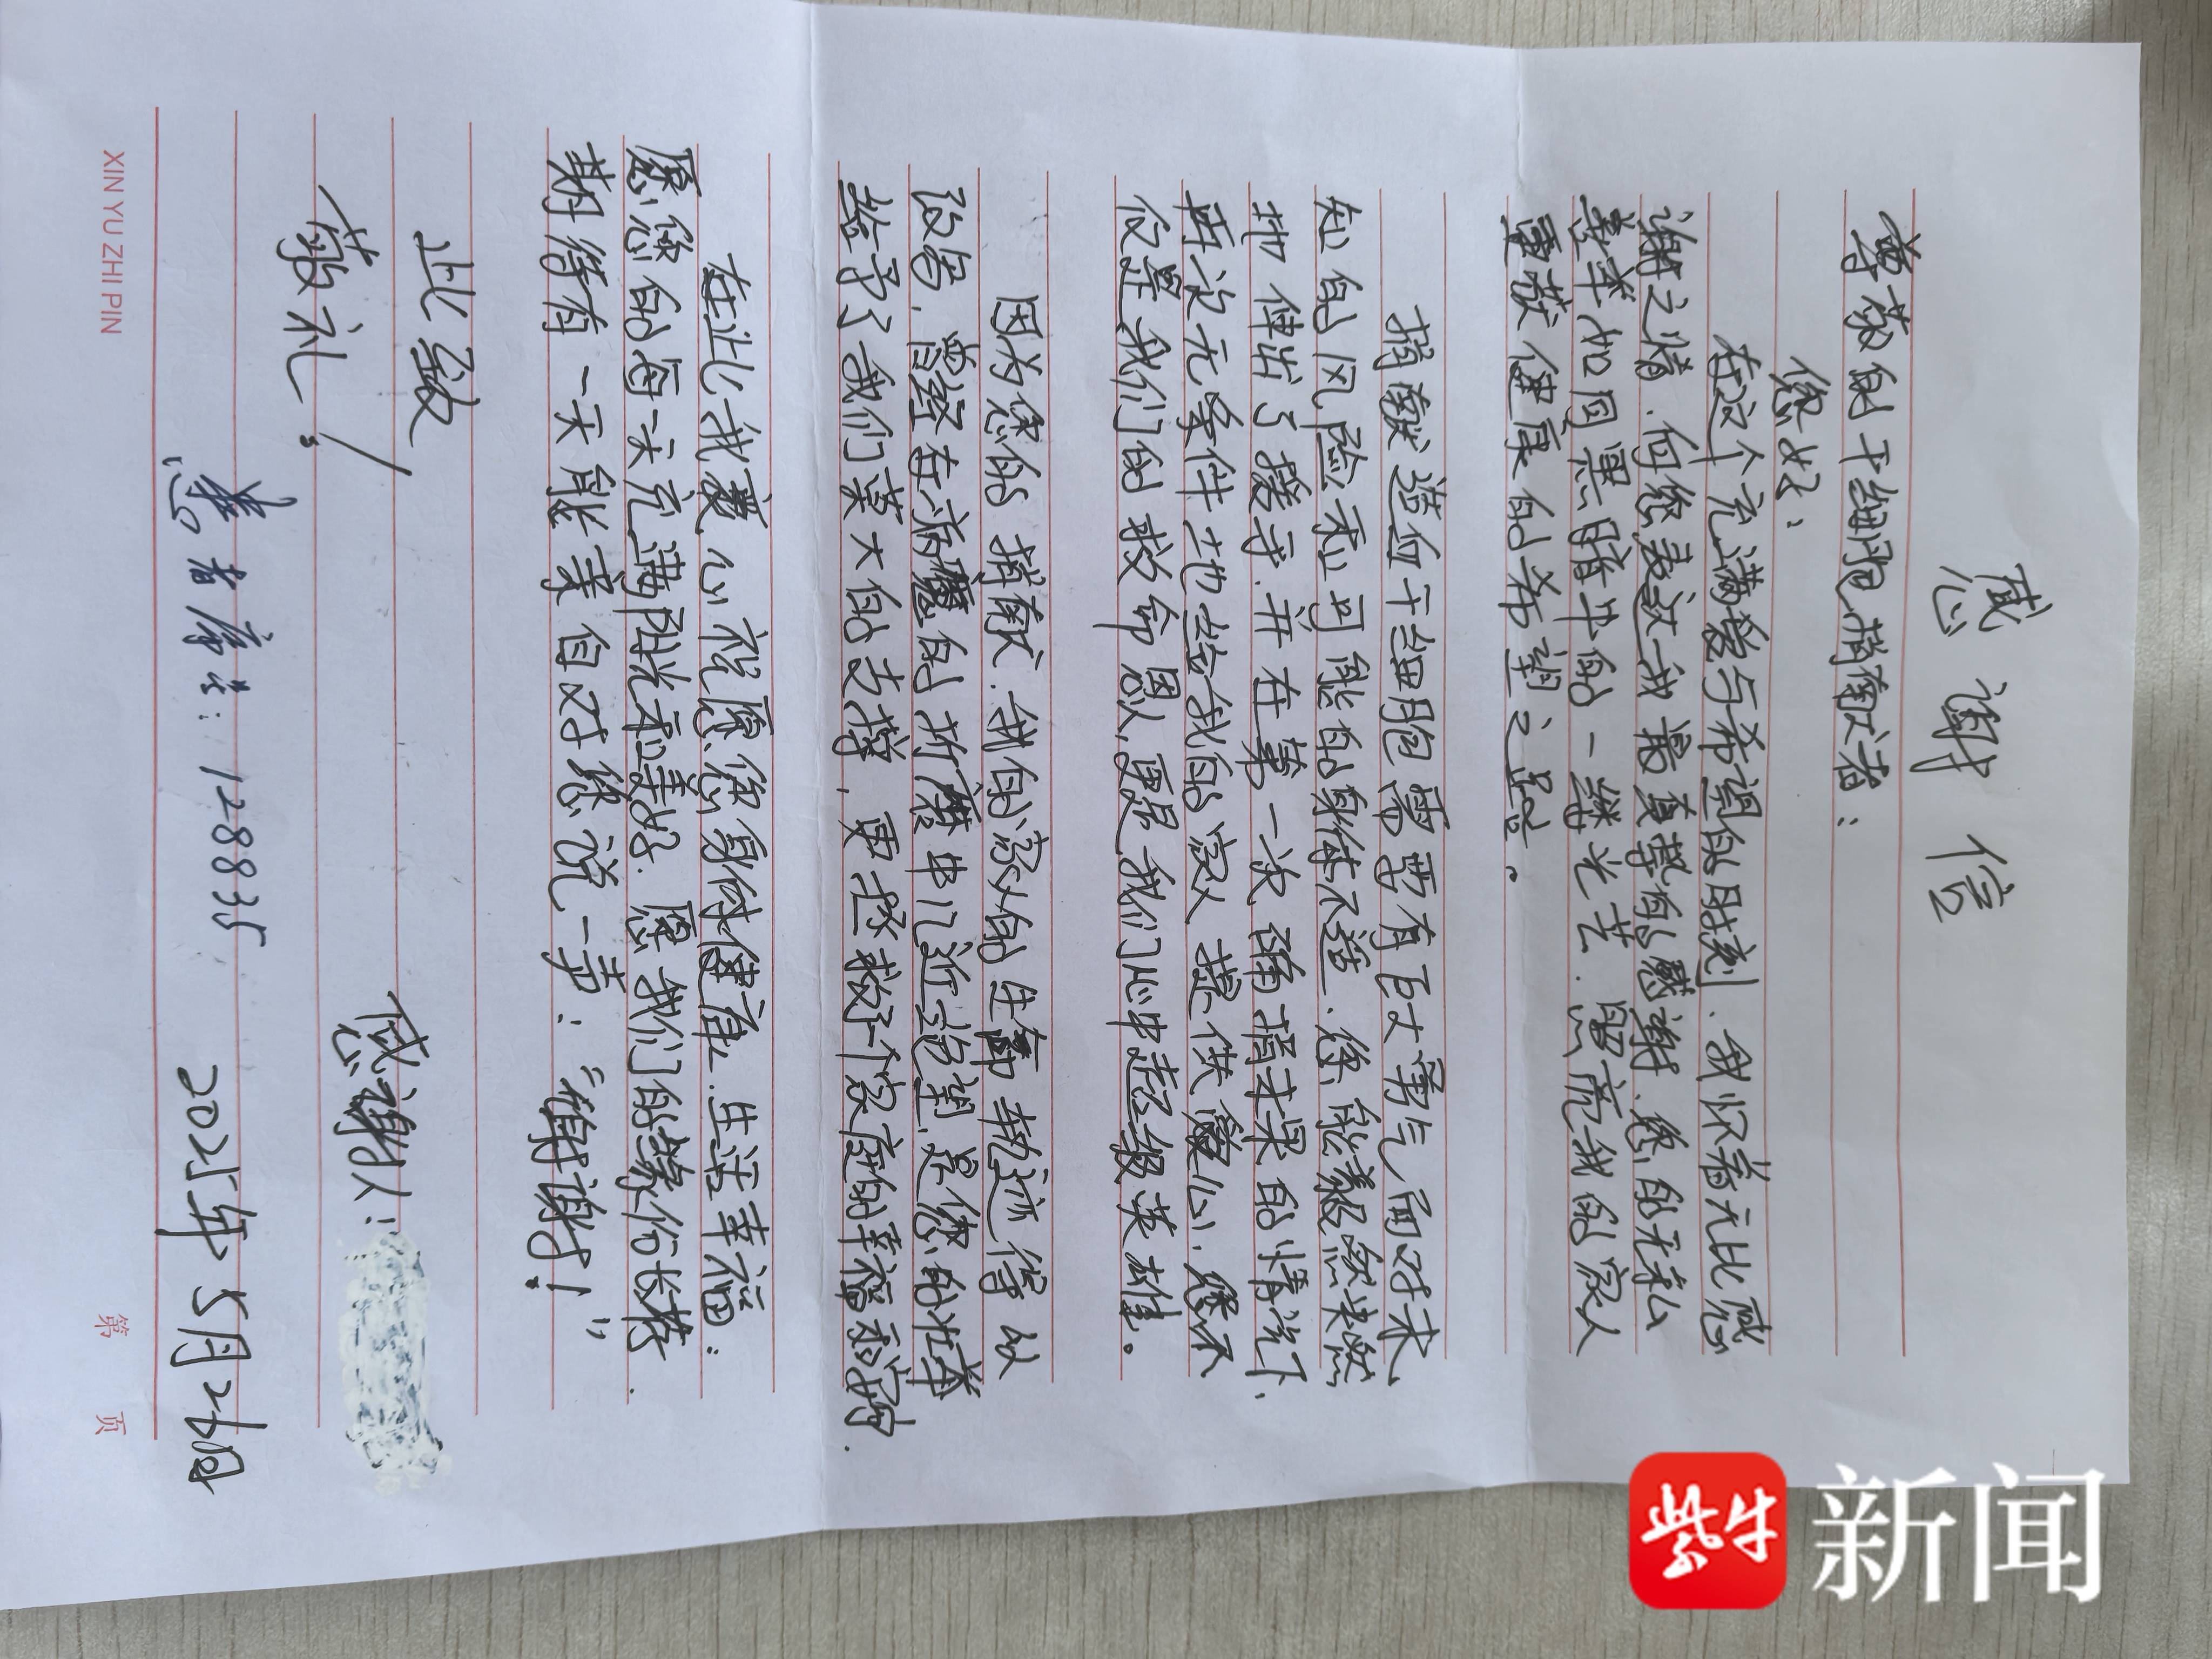 感谢信
尊敬的干细胞捐献者：
您好：
在这个充满爱与希望的时刻.我怀着无比感
谢之情.向您表达我最真挚的感谢.您的无私
善举如同黑暗中的一缕光芒.照亮我的家人
重获健康的希望之路。
捐献造血干细胞需要有巨大勇气面对未
知的风险和可能的身体不适.您能毅然决然
地伸出了援手.并在第一次确捐未果的情况下,
再次无条件地给我的家人提供爱心.您不
仅是我们的救命恩人,更是我们心中超级英雄。
因为您的捐献.我的家人的生命轨迹得以
改写.曾经在病魔的折磨中几近绝望,是您的壮举
给予了我们莫大的支撑,更拯救了个家庭的幸福和完整.
在此我衷心祝愿您身体健康.生活幸福.
愿您的每一天充满阳光和美好.愿我们的缘份长存.
期待有一天能亲自对您说一声："谢谢！"
此致
敬礼！
感谢人：
患者库号：128835
2025年5月26日
XIN YU ZHI PIN
第 页
紫牛
新闻